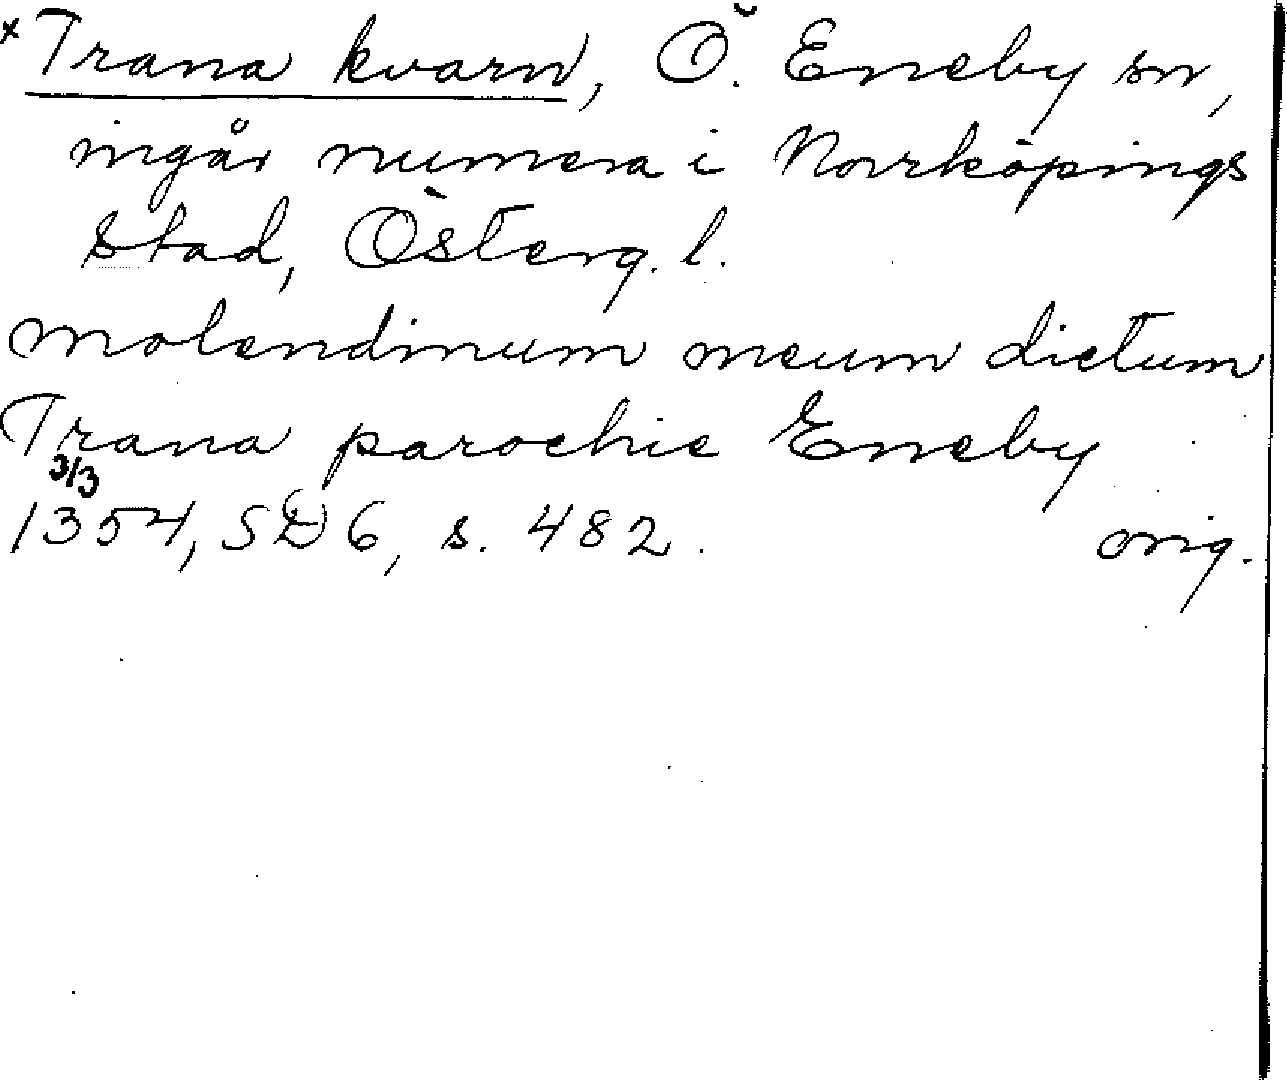 x Trana kvarn, Ö. Eneby sn,
ingår numera i Norrköpings
stad, Österg. l.
molendinum meum dictum
Trana parochie Eneby
3/3
1354, SD 6, s. 482. orig.